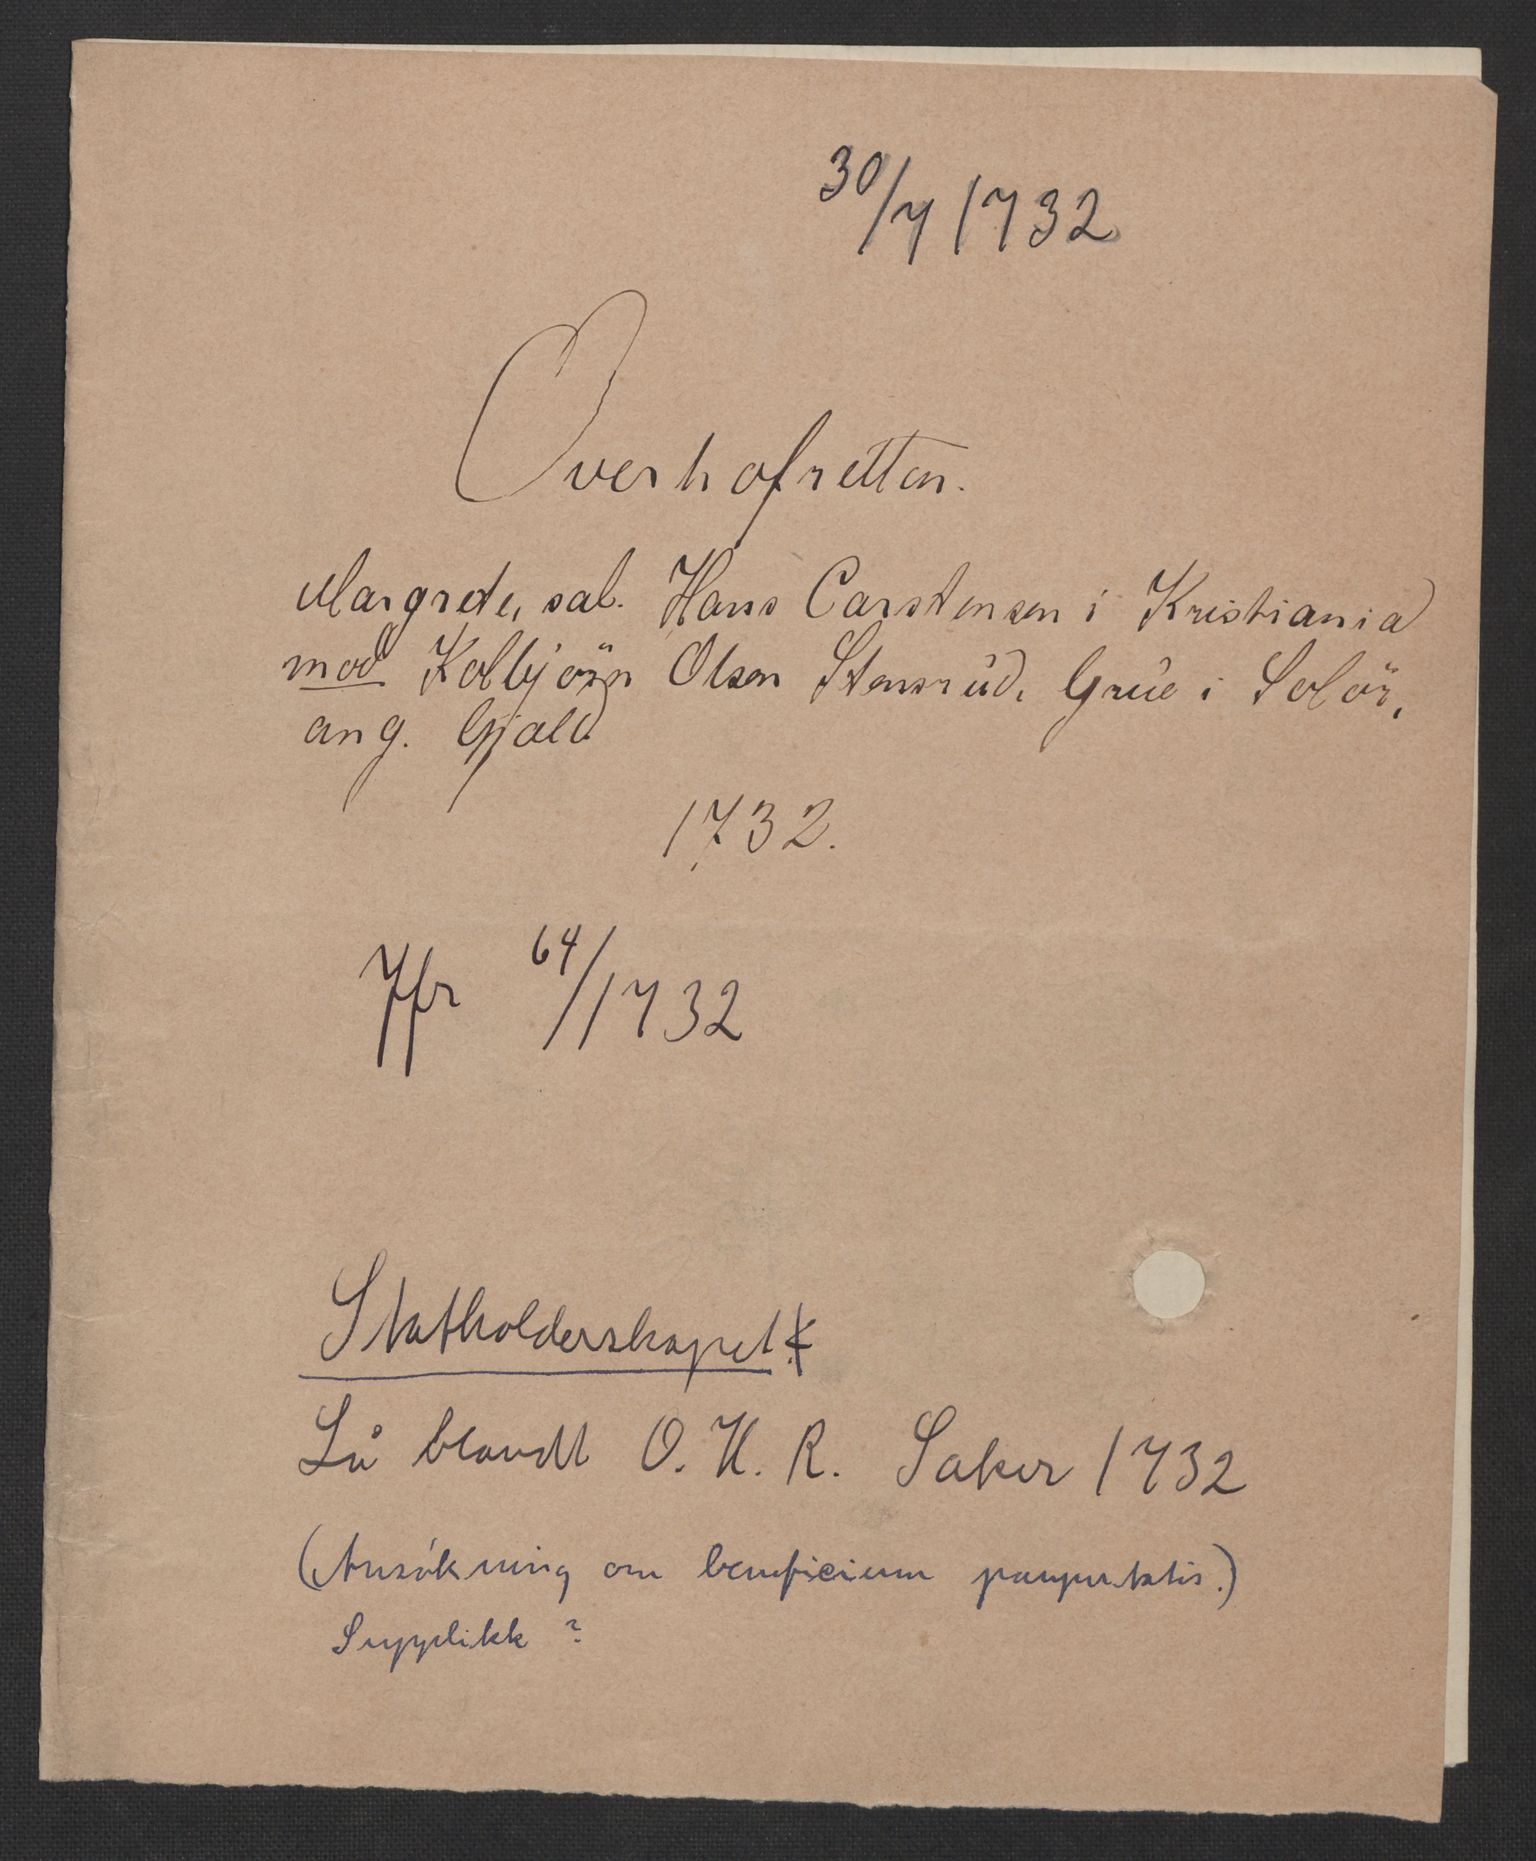 30/7 1732
Overhofretten.
Margrete, sal. Hans Carstensen i Kristiania
mod Kolbjörn Olsen Stensrud, Grue i Solör,
ang. Gjæld
1732.
Jfr 64/1732
Statholderskapet
Lå blandt O. H. R. Saker 1732
(Ansökning om beneficium paupertatis.)
Supplikk ?